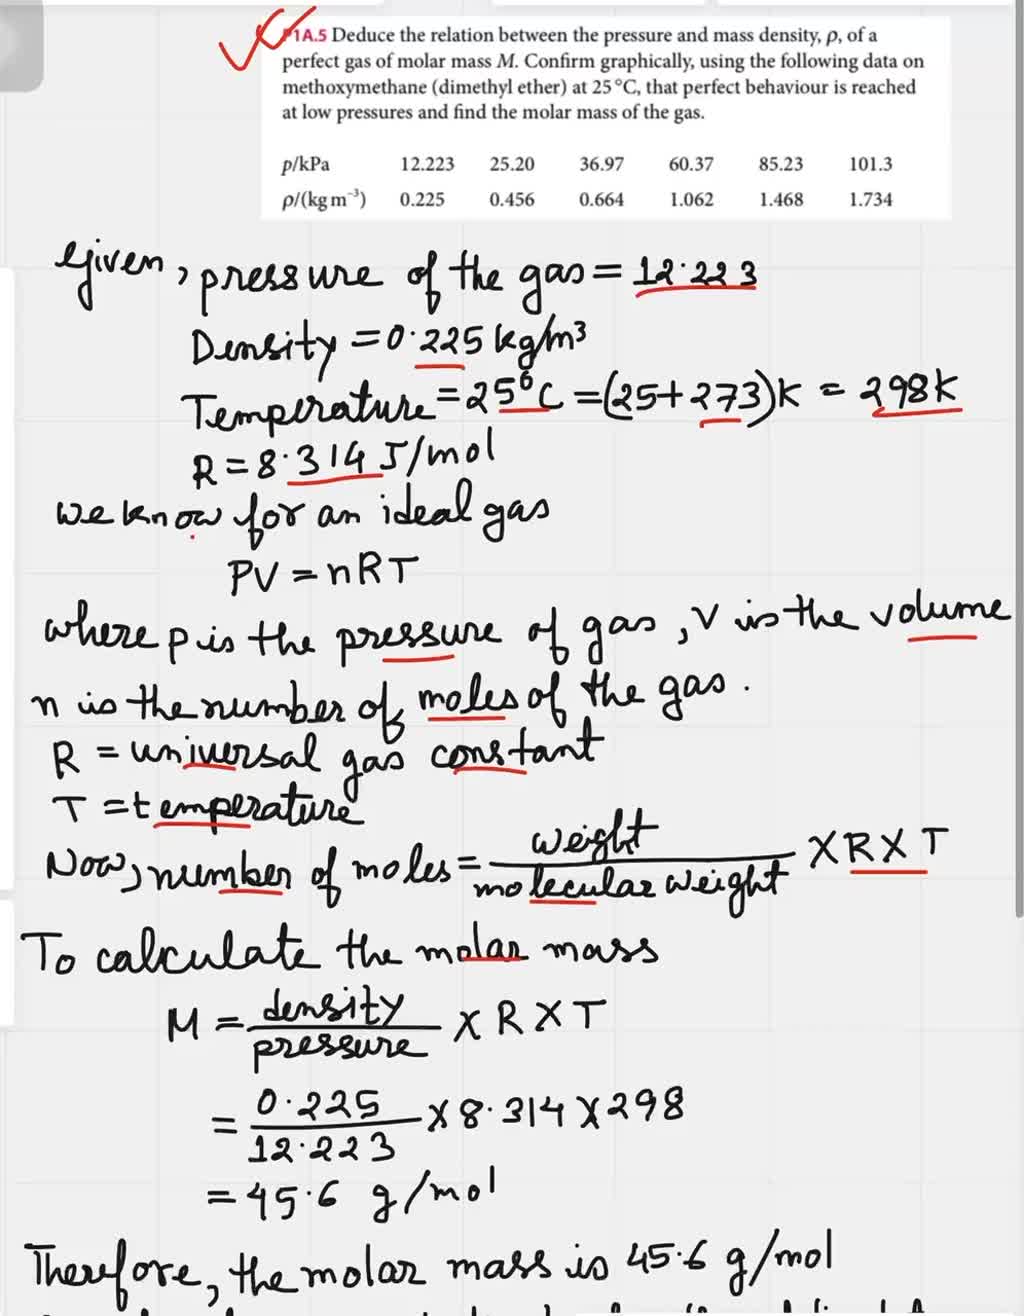 P1A.5 Deduce the relation between the pressure and mass density, ρ, of a
perfect gas of molar mass M. Confirm graphically, using the following data on
methoxymethane (dimethyl ether) at 25 °C, that perfect behaviour is reached
at low pressures and find the molar mass of the gas.
p/kPa 12.223 25.20 36.97 60.37 85.23 101.3
ρ/(kg m⁻³) 0.225 0.456 0.664 1.062 1.468 1.734
Given, pressure of the gas = 12.223
Density = 0.225 kg/m³
Temperature = 25°C = (25+273)K = 298K
R = 8.314 J/mol
we know for an ideal gas
PV = nRT
where p is the pressure of gas, V is the volume
n is the number of moles of the gas.
R = universal gas constant
T = temperature
Now, number of moles = weight / molecular weight X R X T
To calculate the molar mass
M = density / pressure X R X T
= 0.225 / 12.223 X 8.314 X 298
= 45.6 g/mol
Therefore, the molar mass is 45.6 g/mol